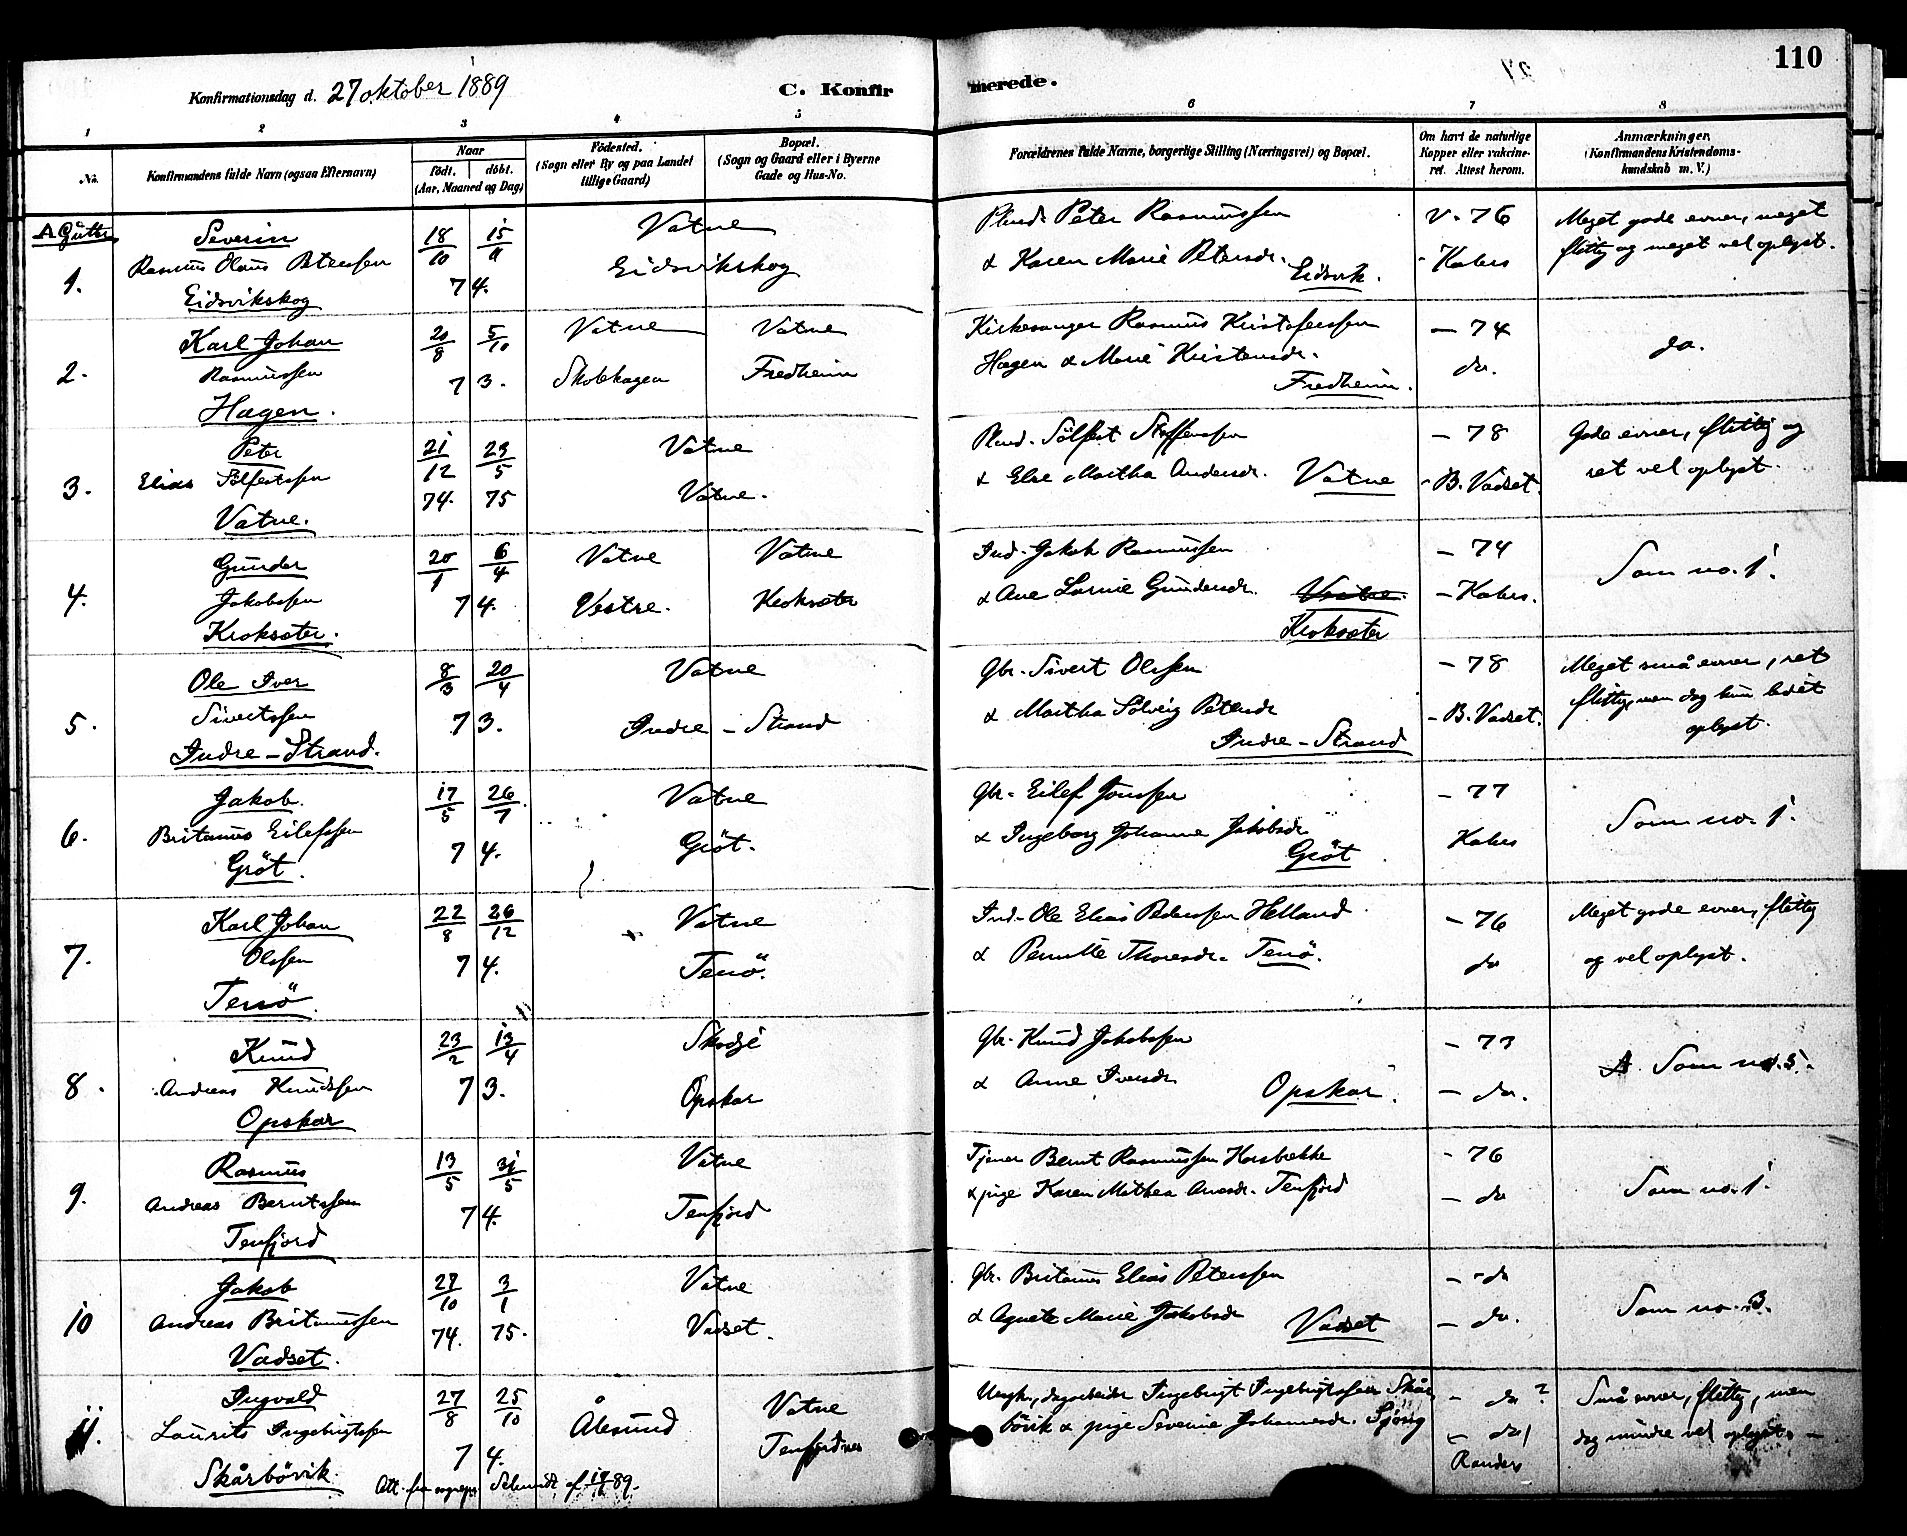 110
Konfirmationsdag d. 27 oktober 1889
C. Konfirmerede.
1 2 3 4 5 6 7 8
No.
Konfirmandens fulde Navn (ogsaa Efternavn)
Naar
födt. döbt.
(Aar, Maaned og Dag)
Födested.
(Sogn eller By og paa Landet
tillige Gaard)
Bopæl.
(Sogn og Gaard eller i Byerne
Gade og Hus-No.
Forældrenes fulde Navne, borgerlige Stilling (Næringsvei) og Bopæl.
Om havt de naturlige
Kopper eller vakcine-
ret. Attest herom.
Anmærkninger.
(Konfirmandens Kristendoms-
kundskab m. V.)
A Gutter
1.
Severin
Rasmus Olaus Petersen
Eidsvikskog
18/10 15/11
74.
Vatne
Eidsvikskog
Plmd. Peter Rasmussen
& Karen Marie Petersdr.
Eidsvik.
V. 76
Meget gode evner, meget
flittig og meget vel oplyst.
2.
Karl Johan
Rasmussen
Hagen.
20/8 5/10
73.
Vatne Vatne
Skolehagen Fredheim
Kirkesanger Rasmus Kristofersen
Hagen & Marie Kristensdr.
Fredheim.
— 74
do.
do.
3.
Peter
Elias Sölfestsen
Vatne.
21/12 23/5
74. 75
Vatne
Vatne.
Plmd. Sölfest Steffensen
& Else Martha Andersdr. Vatne
— 78
- B. Vadset.
Gode evner, flittig og
ret vel oplyst.
4.
Gunder
Jakobsen
Kroksæter.
20/1 6/4
74.
Vatne Vatne
Vestre. Kroksæter
Ind. Jakob Rasmussen
& Ane Lovise Gundersdr. Vestre.
Kroksæter
— 74
Som no. 1.
5.
Ole Iver
Sivertsen
Indre-Strand.
8/3 20/4
73.
Vatne
Indre - Strand
Gbr. Sivert Olsen
& Martha Solveig Petersdr
Indre-Strand
— 78
- B. Vadset.
Meget små evner, ret
flittig, men dog kun lidet
oplyst.
6.
Jakob.
Britanus Eilefsen
Gröt.
17/5 26/7
74.
Vatne
Gröt.
Gbr. Eilef Jonsen
& Ingeborg Johanne Jakobsdr
Gröt
- 77
Som no. 1.
7.
Karl Johan
Olsen
Tenö
22/8 26/12
74.
Vatne
Tenö.
Ind. Ole Elias Pedersen Helland
& Pernille Thoresdr. Tenö.
- 76
do
Meget gode evner, flittig
og vel oplyst.
8.
Knud
Andreas Knudsen
Opskar
23/2 13/4
73.
Skodje
Opskar
Gbr. Knud Jakobsen
& Anne Iversdr
Opskar.
- 77
— do.
Som no. 5.
9.
Rasmus
Andreas Berntsen
Tenfjord
13/5 31/5
74.
Vatne
Tenfjord
Tjener Bernt Rasmussen Horsbække
& pige Karen Mathea Anesdr. Tenfjord
- 76
— do
Som no. 1.
10
Jakob
Andreas Britanussen
Vadset.
27/10 3/1
74. 75.
Vatne
Vadset.
Gbr. Britanus Elias Petersen
& Agnete Marie Jakobsdr
Vadset
— do
— do.
Som no. 3.
11.
Ingvald
Laurits Ingebrigtsen
Skårbövik.
27/8 25/10
74.
Ålesund
Vatne
Tenfjordnes
Ungk., dagarbeider Ingebrigt Ingebrigtsen Skår-
bövik & pige Severine Johannesdr. Sjöveg
- do?
- do/
Randers
Små evner, flittig, men
dog mindre vel oplyst.